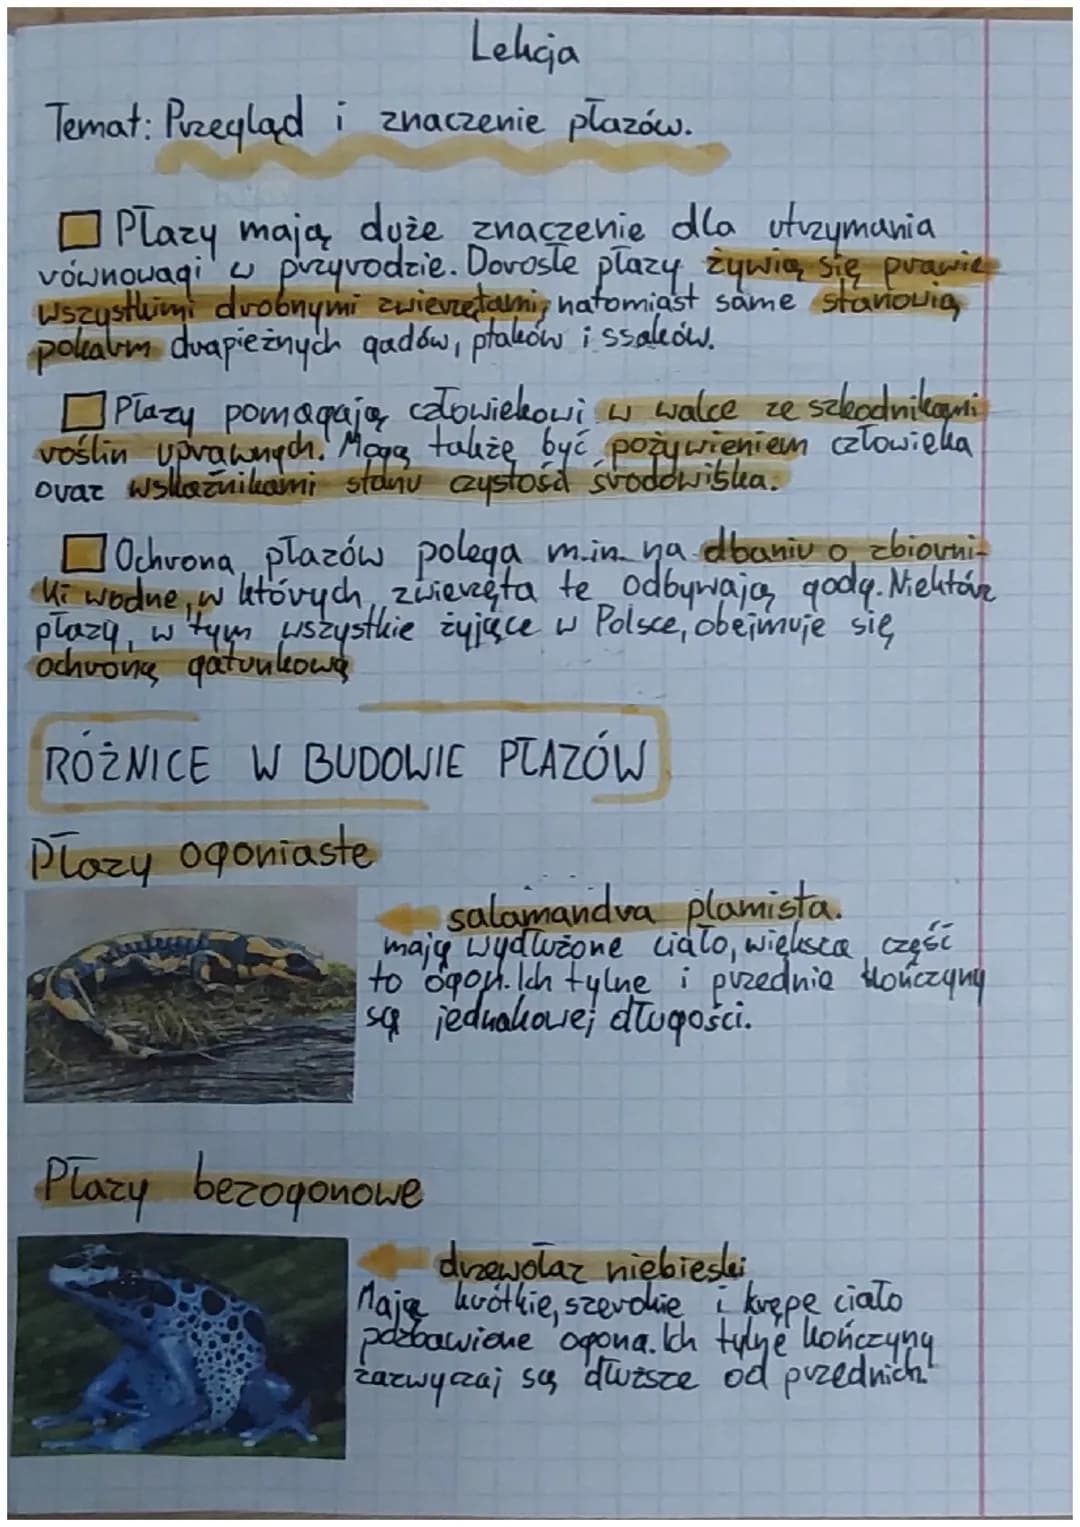 Lekcja
Temat: Przegląd i znaczenie płazów.
Płazy mają duże znaczenie dla utrzymania
równowagi w przyrodzie. Dorosłe płazy żywią się prawie
wszystkimi drobnymi zwierzętami, natomiast same stanowią
pokarm drapieżnych gadów, ptaków i ssaków.
Płazy pomagają człowiekowi w walce ze szkodnikami
roślin uprawnych. Mogą także być pożywieniem człowieka
oraz wskaźnikami stanu czystości środowiska.
Ochrona płazów polega m.in. na dbaniu o zbiorni-
ki wodne, w których zwierzęta te odbywają gody. Niektóre
płazy, w tym wszystkie żyjące w Polsce, obejmuje się
ochroną gatunkową
RÓŻNICE W BUDOWIE PŁAZÓW
Płazy ogoniaste
salamandra plamista.
mają wydłużone ciało, większa część
to ogon. Ich tylne i przednie kończyny
są jednakowej długości.
Płazy bezogonowe
drzewołaz niebieski
Mają krótkie, szerokie i krępe ciało
pozbawione ogona. Ich tylne kończyny
zazwyczaj są dłuższe od przednich.